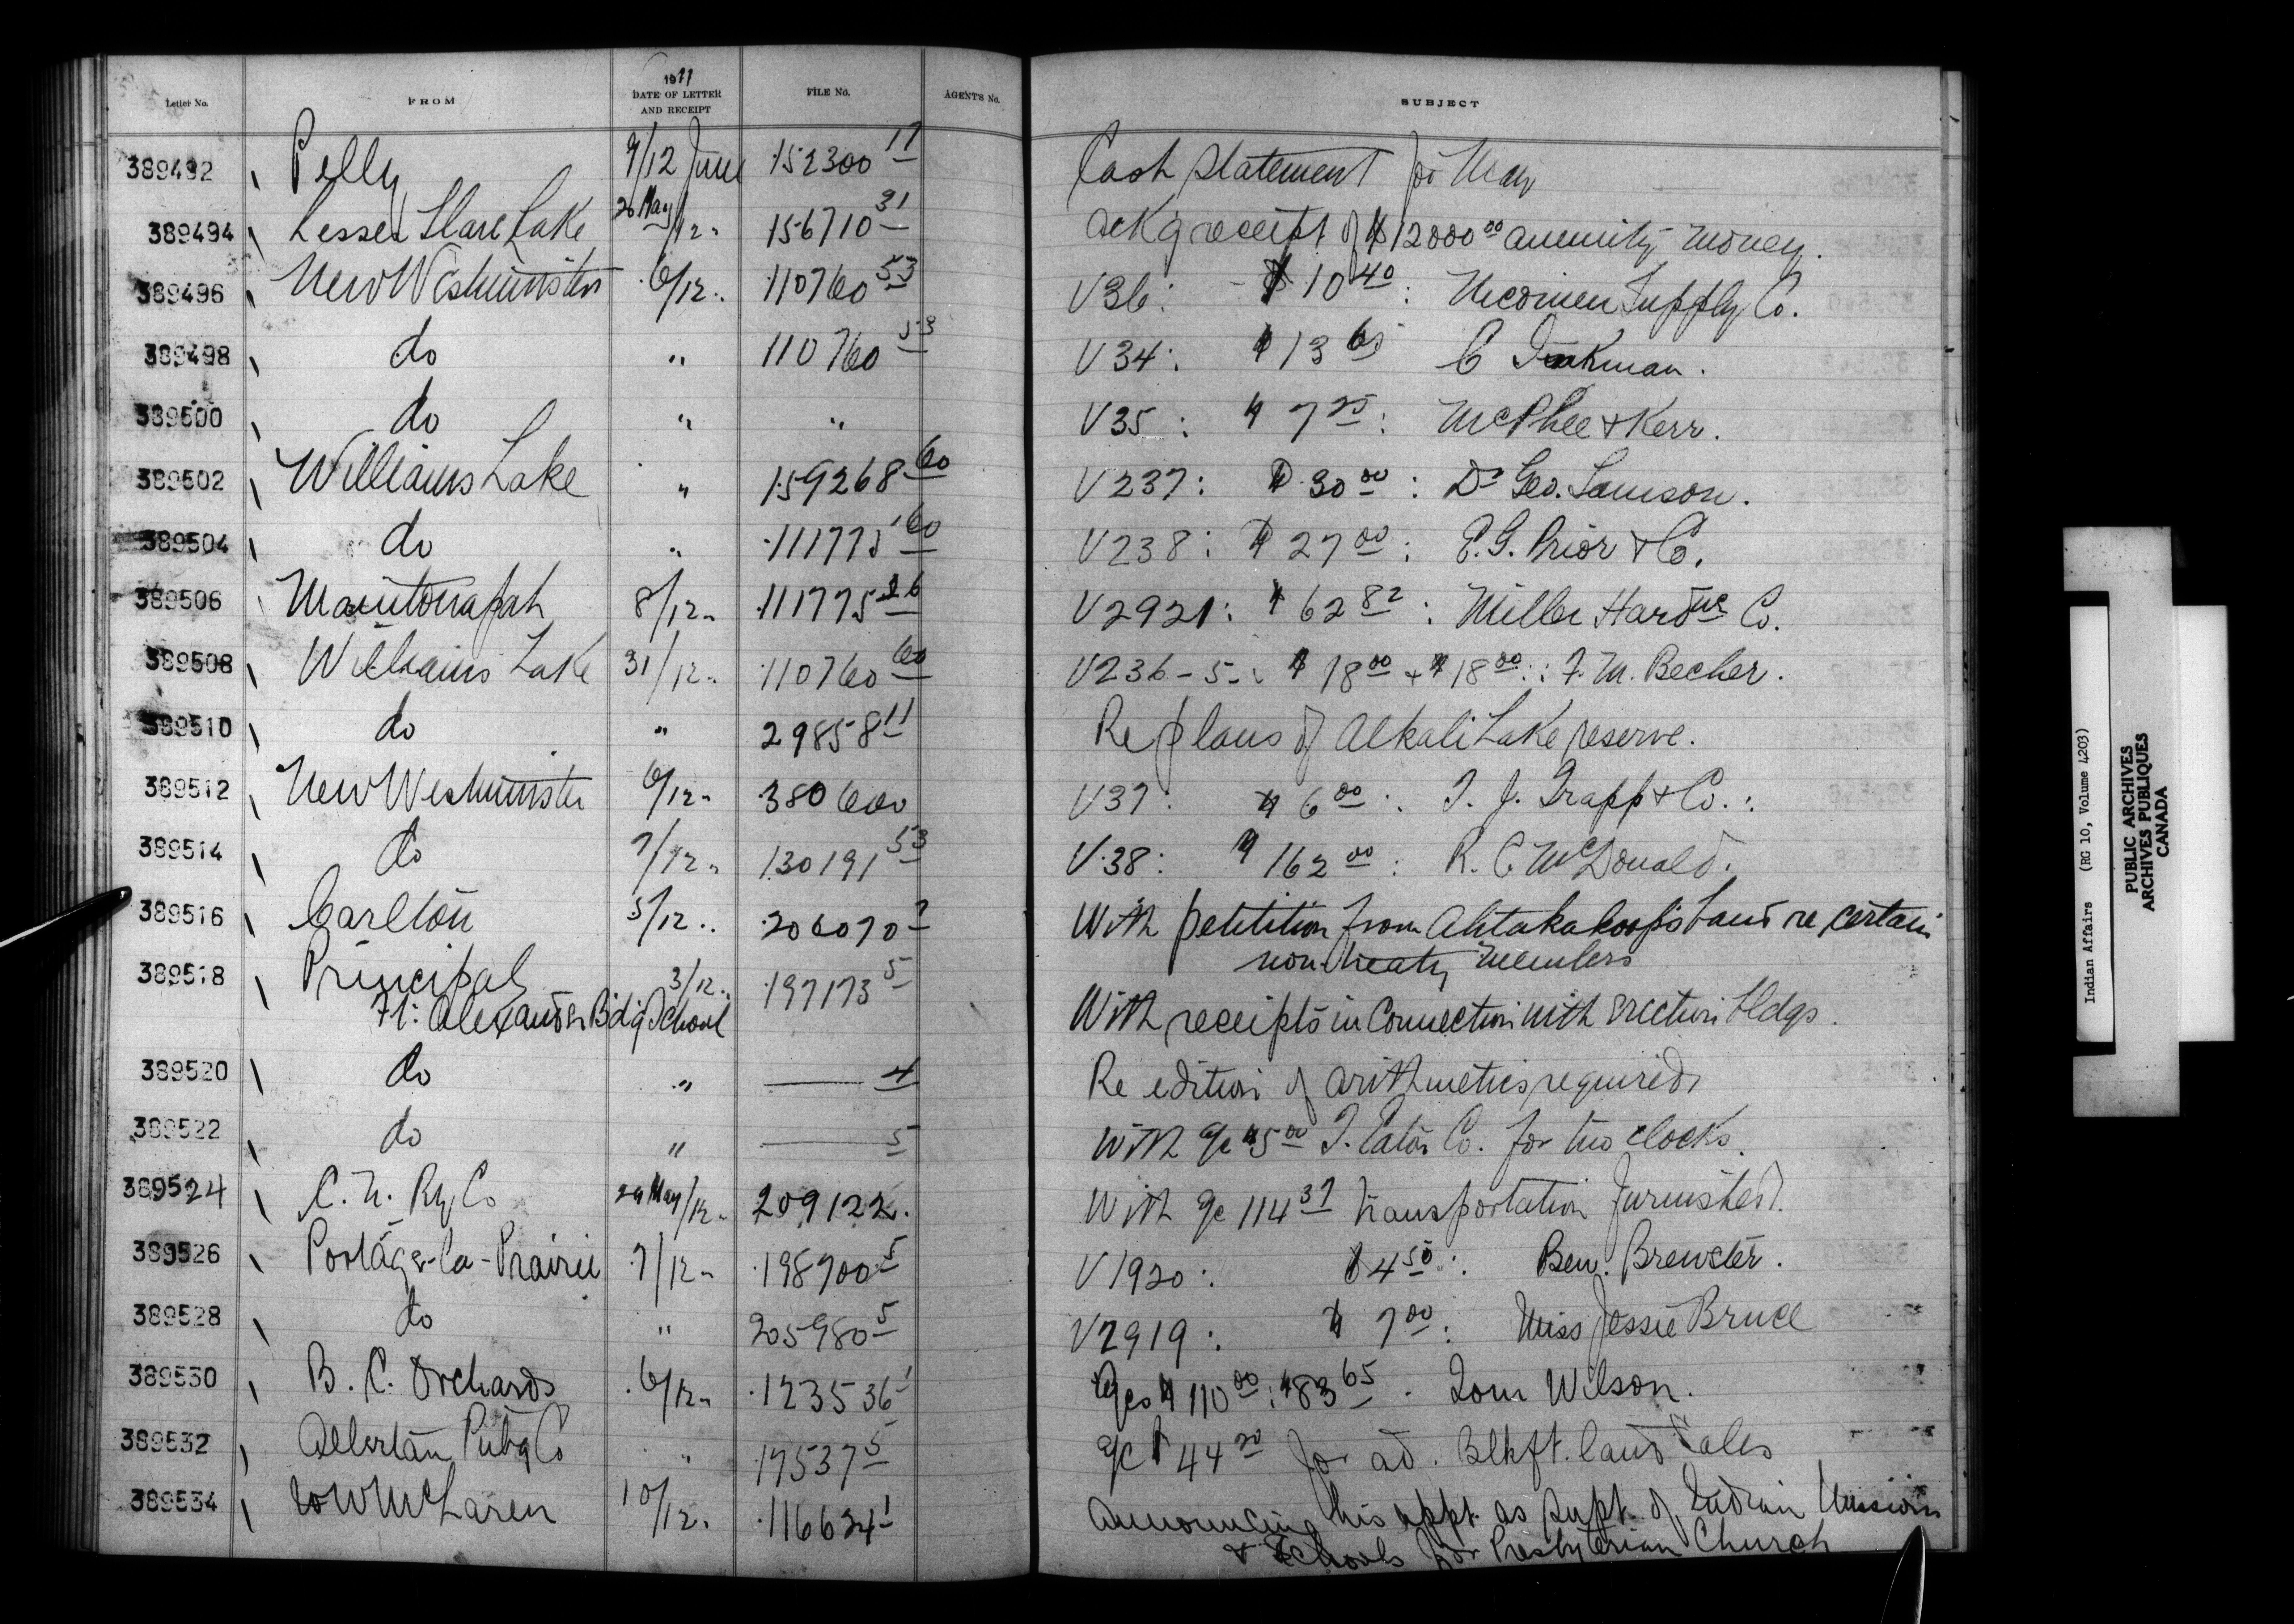 Letter No. FROM 1911 DATE OF LETTER AND RECEIPT FILE No. AGENT'S No. SUBJECT
389492 Pelly 9/12 June 152300 17 Cash Statement for May
389494 Lesser Slave Lake 26 May/12 " 156710 31 Ackg receipt of $12000 00 annuity money.
389496 New Westminster 6/12 " 110760 53 V36: $10 40: Nicomen Supply Co.
389498 do " 110760 53 V34: $13 65 C
389500 do " " V35: $7 25: McPhee & Kerr.
389502 Williams Lake " 159268 60 V237: $30 00: Dr Geo. Sanson.
389504 do " 111775 60 V238: $27 00: E.G. Prior & Co.
389506 Manitouapah 8/12 " 111775 26 V2921: $62 82: Miller Hardwe Co.
389508 Williams Lake 31/12 " 110760 60 V236-5-: $18 00 + $18 00: F. M. Becher.
389510 do " 29858 11 Re plans of Alkali Lake reserve.
389512 New Westminster 6/12 " 380600 V37: $6 00: T. J. Trapp & Co.:
389514 do 7/12 " 130191 53 V38: $162 00: R. C. McDonald.
389516 Carlton 5/12 " 206070 2 With petition from Ahtakakoops band re certain
non treaty members
389518 Principal 3/12 " 197173 5
Ft: Alexander Bdg School With receipts in Connection with erection bldgs.
389520 do " —— 4 Re edition of arithmetics required.
389522 do " —— 5 With a/c $5 00 T. Eaton Co. for two clocks.
389524 C. N. Ry Co 29 May/12 " 209122. With a/c 114 37 transportation furnished.
389526 Portage-la-Prairie 7/12 " 198900 5 V1920: $4 50: Ben. Brewster.
389528 do " 205980 5 V2919: $7 00: Miss Jessie Bruce
389530 B. C. Orchards 6/12 " 123536 1 A/cs $110 00: $83 65. Tom Wilson.
389532 Albertan Pubg Co " 17537 5 a/c $44 20 for ad. Blkft. land sales
389534 W W McLaren 10/12 " 116624 1 Announcing his appt. as Supt. of Indian Missions
& Schools for Presbyterian Church
Indian Affairs (RG 10, Volume 4203)
PUBLIC ARCHIVES
ARCHIVES PUBLIQUES
CANADA